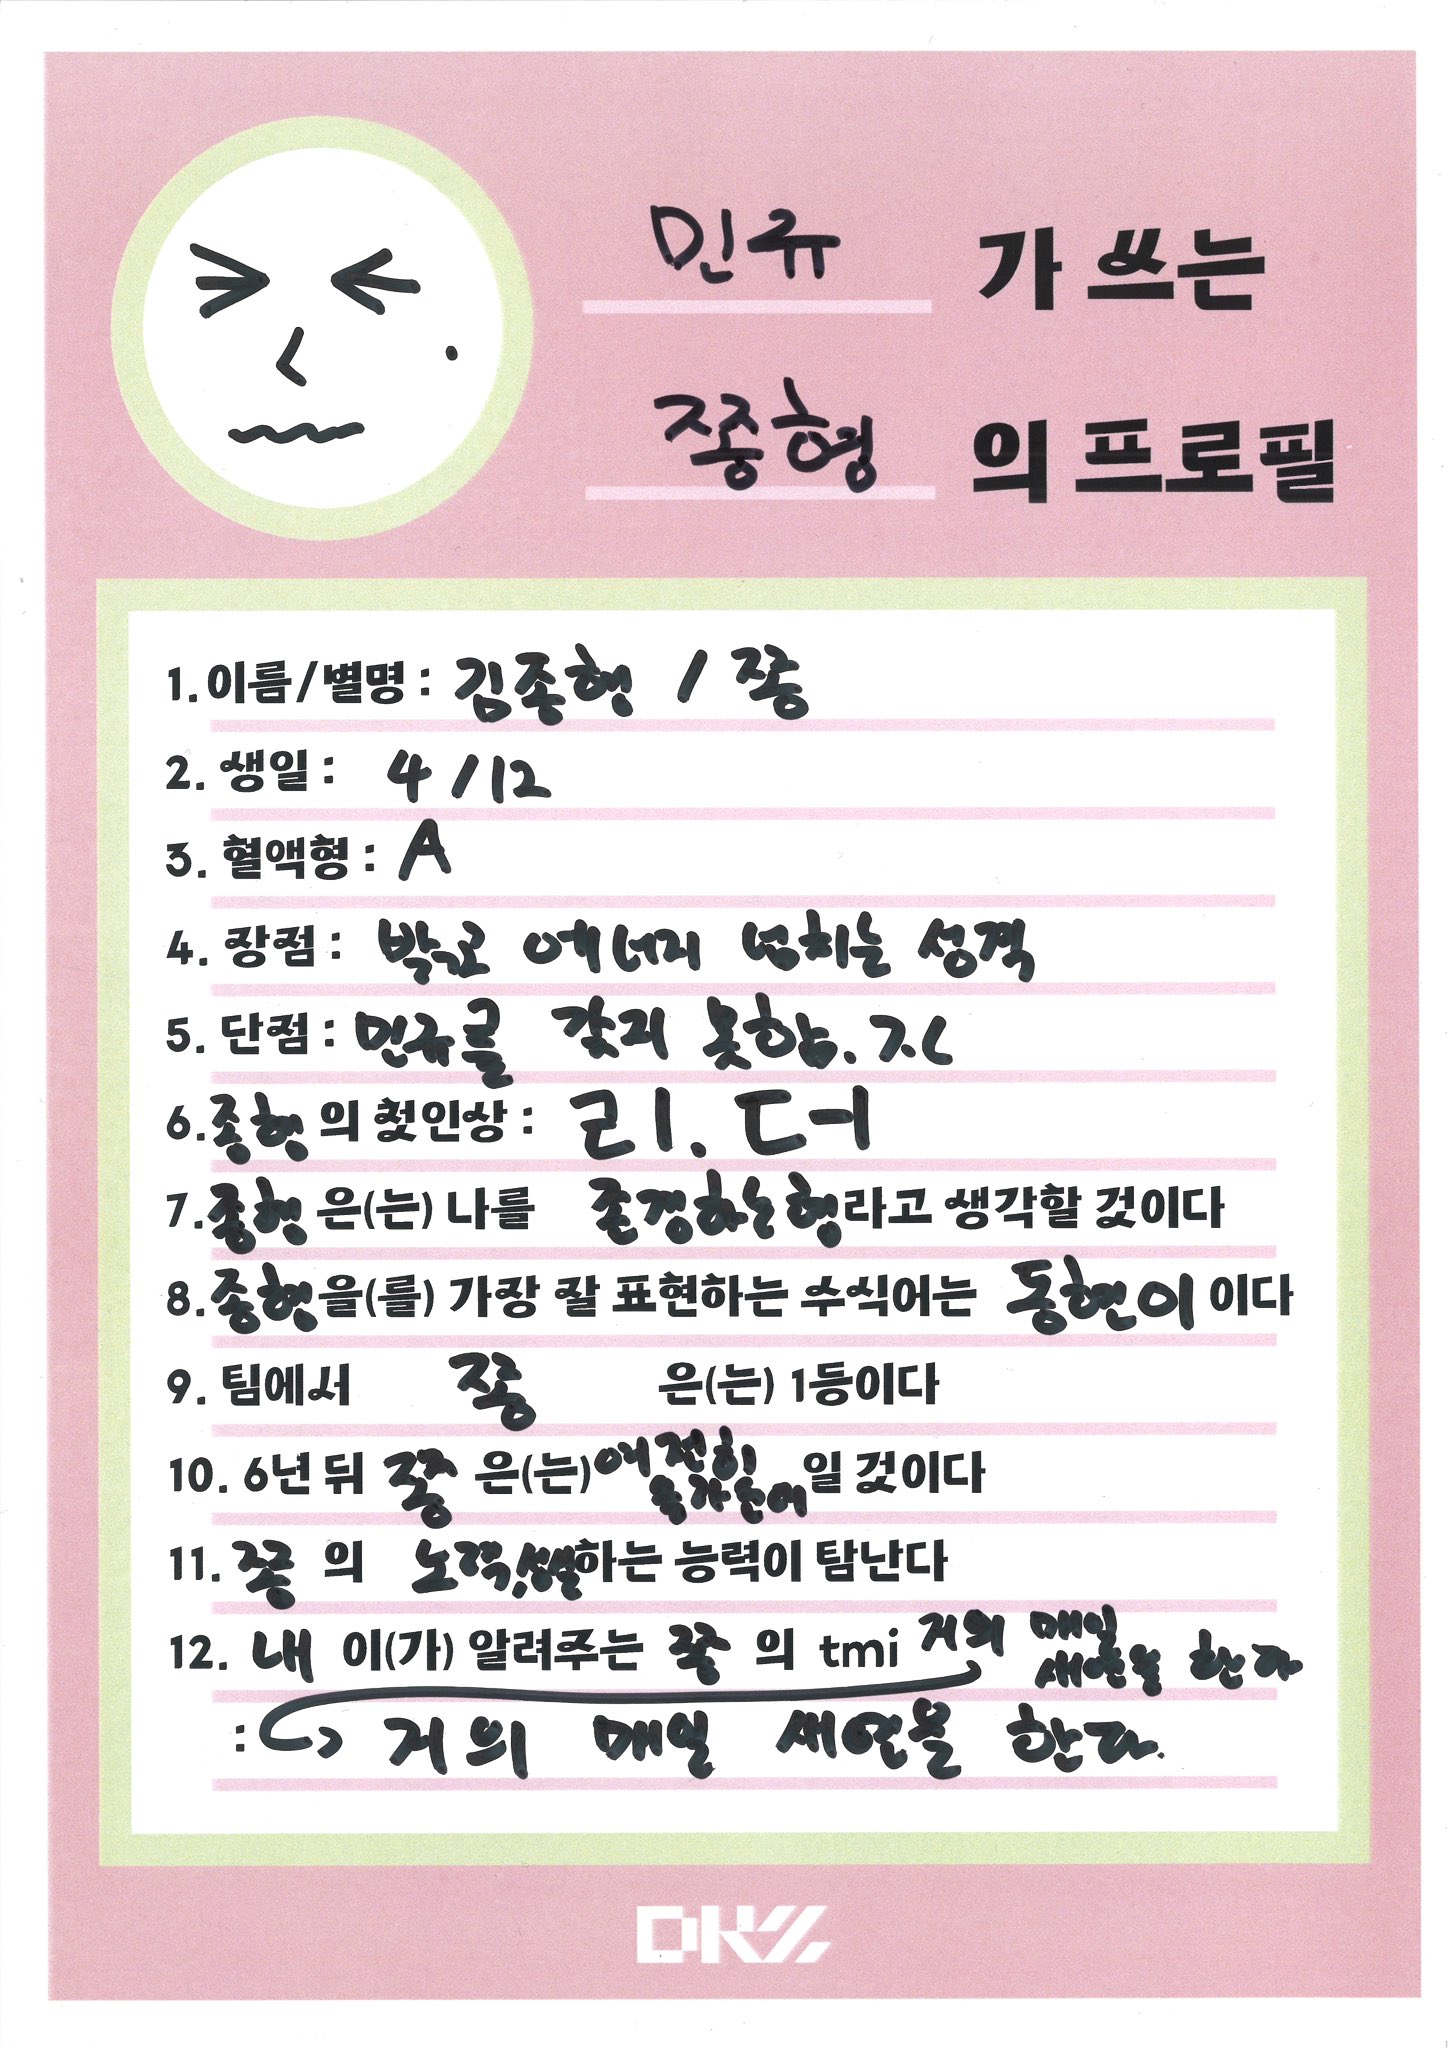 민규 가 쓰는
쫑형 의 프로필
1. 이름/별명 : 김종형 / 쫑
2. 생일 : 4/12
3. 혈액형 : A
4. 장점 : 밝고 에너지 넘치는 성격
5. 단점 : 민규를 갖지 못함. ㅈㄴ
6. 종형 의 첫인상 : 리. 더
7. 종형 은(는) 나를 존경하는형 라고 생각할 것이다
8. 종형 을(를) 가장 잘 표현하는 수식어는 동현이 이다
9. 팀에서 쫑 은(는) 1등이다
10. 6년 뒤 쫑 은(는) 여전히 일 것이다
11. 쫑 의 노력, 하는 능력이 탐난다
12. 내 이(가) 알려주는 쫑 의 tmi 거의 매일 세안을 한다
: 거의 매일 세안을 한다.
DKZ